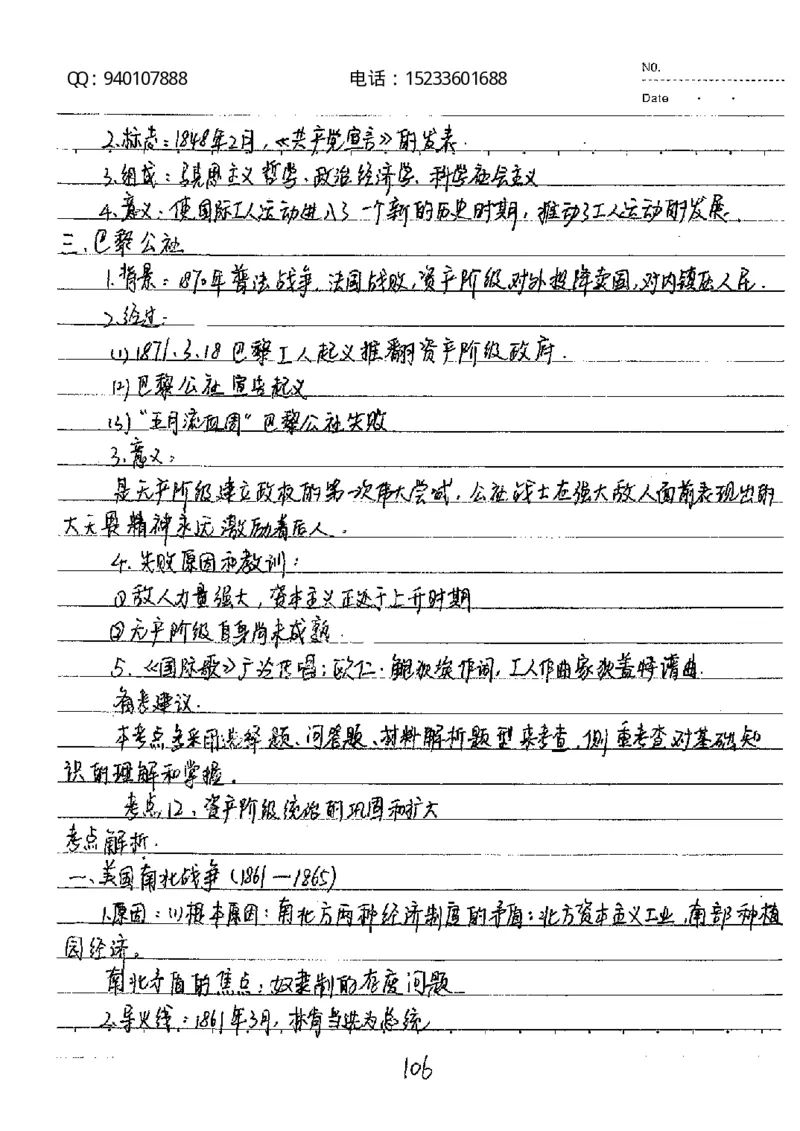 QQ：940107888 电话：15233601688 NO.
Date
2.标志：1848年2月，《共产党宣言》的发表.
3.组成：马克思主义哲学、政治经济学、科学社会主义
4.意义：使国际工人运动进入了一个新的历史时期，推动了工人运动的发展.
三、巴黎公社
1.背景：1870年普法战争，法国战败，资产阶级对外投降卖国，对内镇压人民.
2.经过：
(1)1871.3.18巴黎工人起义推翻资产阶级政府.
(2)巴黎公社宣告起义
(3)“五月流血周”巴黎公社失败
3.意义：
是无产阶级建立政权的第一次伟大尝试，公社战士在强大敌人面前表现出的
大无畏精神永远激励着后人.
4.失败原因和教训：
①敌人力量强大，资本主义正处于上升时期
②无产阶级自身尚未成熟.
5.《国际歌》广泛传唱：欧仁·鲍狄埃作词，工人作曲家狄盖特谱曲.
备考建议.
本考点多采用选择题、问答题、材料解析题型来考查，侧重考查对基础知
识的理解和掌握.
考点12、资产阶级统治的巩固和扩大
考点解析.
一、美国南北战争(1861—1865)
1.原因：(1)根本原因：南北方两种经济制度的矛盾：北方资本主义工业，南部种植
园经济。
南北矛盾的焦点：奴隶制的存废问题
2.导火线：1861年3月，林肯当选为总统
106